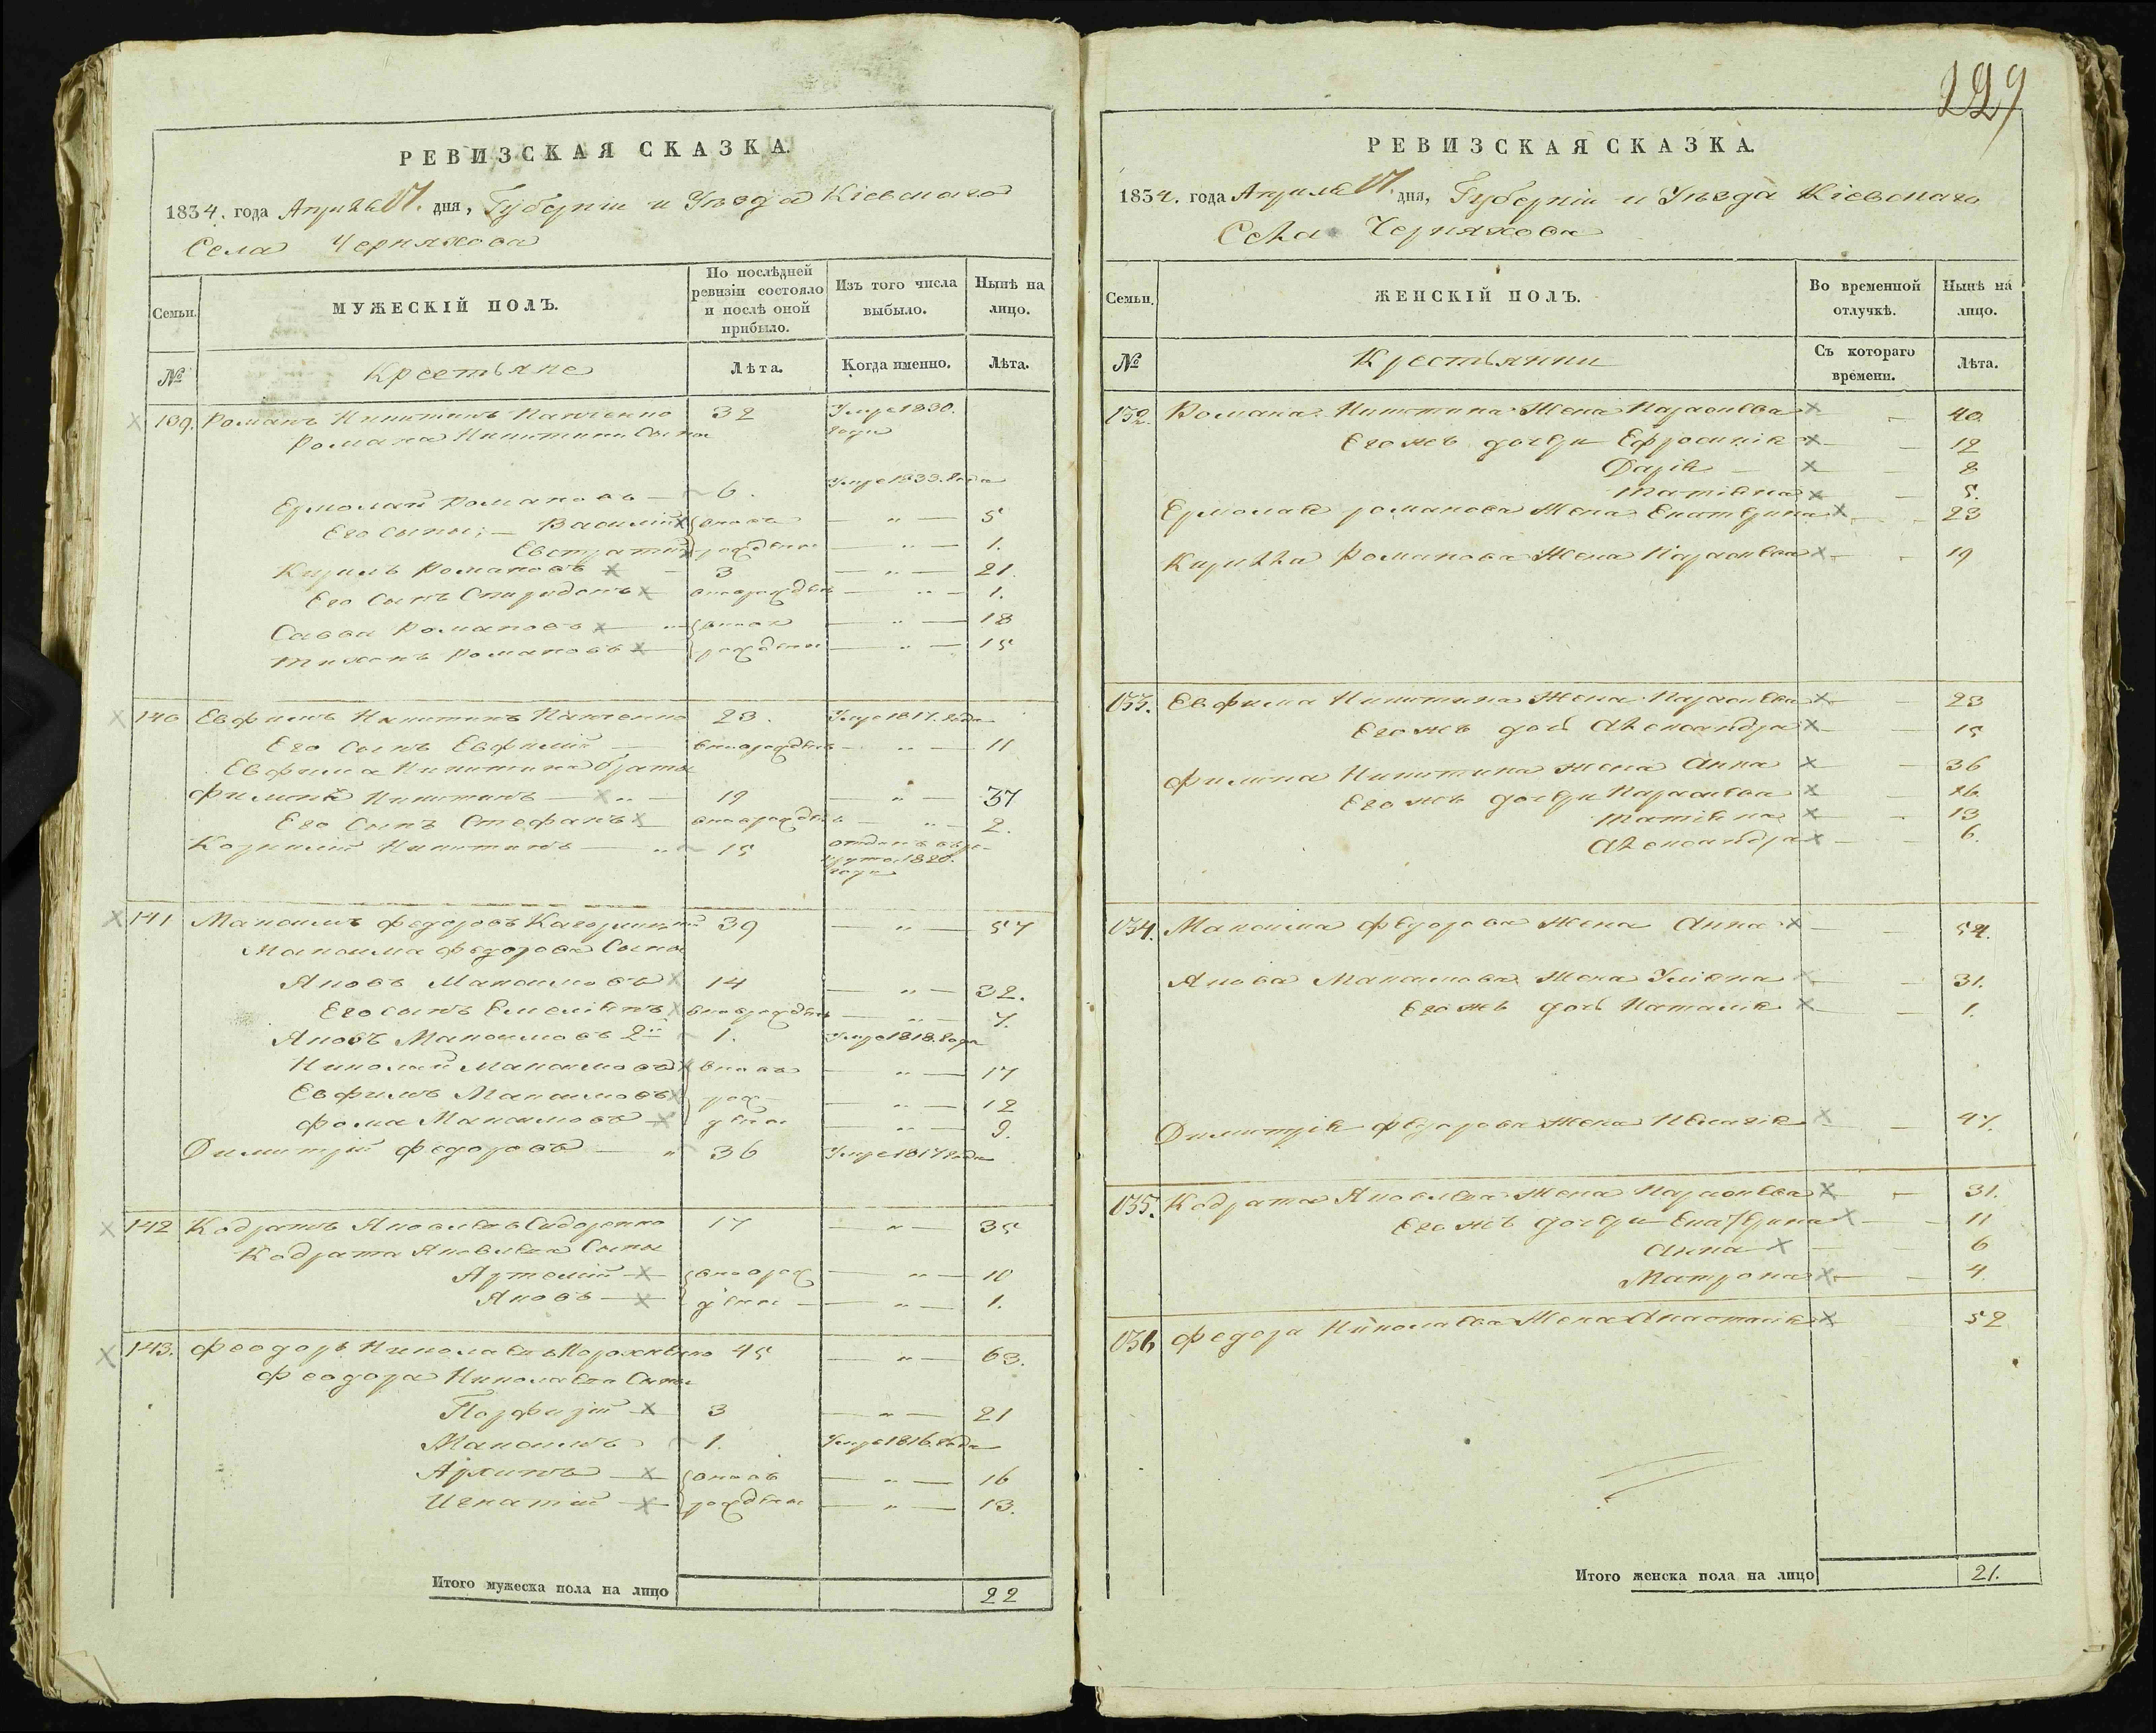 РЕВИЗСКАЯ СКАЗКА.
1834. года Апреля 17. дня, Губернии и Уезда Кіевскаго
Села Черняхова
Семьи.
МУЖЕСКІЙ ПОЛЪ.
По послѣдней ревизіи состояло и послѣ оной прибыло.
Изъ того числа выбыло.
Нынѣ на лицо.
№
Крестьяне
Лѣта.
Когда именно.
Лѣта.
139. Романъ Никитинъ 32 Умре 1830. года
Романа Никитина Сыны
Ермолай Романовъ — 6. Умре 1833. года
Его сыны; — Василій вновь — „ — 5
Евстратій рождены — „ — 1.
Кирилъ Романовъ 3 — „ — 21.
Его Сынъ Спиридонъ вноврожденъ — „ — 1.
Савва Романовъ вновь — „ — 18
Тихонъ Романовъ рождены — „ — 15
140 Евфимъ Никитинъ 23. Умре 1817. года
Его Сынъ Евфимій вноврожденъ — „ — 11
Евфима Никитина братья
Филипъ Никитинъ — „ — 19 — „ — 37
Его Сынъ Стефанъ вноврожденъ — „ — 2.
Корнилій Никитинъ — „ 15 отданъ въ рекруты 1820. года
141 Максимъ Федоровъ Кагарлицкій 39 — „ — 57
Максима Федорова Сыны
Яковъ Максимовъ 14 — „ — 32.
Его сынъ Емеліянъ вноврожденъ — „ — 7.
Яковъ Максимовъ 2й 1. Умре 1818. года
Николай Максимовъ вновь — „ — 17
Евфимъ Максимовъ рож — „ — 12
Фома Максимовъ дены — „ — 9.
Димитрій Федоровъ — „ 36 Умре 1817 года
142 Кодратъ Яковлевъ Сидоренко 17 — „ — 35
Кодрата Яковлева Сыны
Артемій вноврож — „ — 10
Яковъ — дены — „ — 1.
143. Феодоръ Николаевъ 45 — „ — 63.
Феодора Николаева Сыны
Порфирій 3 — „ — 21
Максимъ 1. Умре 1816. года
Архипъ — вновь — „ — 16
Игнатій рождены — „ — 13.
Итого мужеска пола на лицо 22
229
РЕВИЗСКАЯ СКАЗКА.
1834. года Апреля 17. дня, Губерніи и Уезда Кіевскаго
Села Черняхова
Семьи.
ЖЕНСКІЙ ПОЛЪ.
Во временной отлучкѣ.
Нынѣ на лицо.
№
Крестьянки
Съ котораго времени.
Лѣта.
132. Романа Никитина Жена Параскева — 40.
Его жъ дочери Ефросинія — 12
Дарія — — 8
Татіяна — 5.
Ермолая Романова Жена Екатерина — 23
Кирилла Романова Жена Параскева — 19
133. Евфима Никитина Жена Параскева — 23
Его жъ дочь Александра — 15
Филипа Никитина жена Анна — 36
Его жъ дочери Параскева — 16
Татіяна — 13
Александра — 6.
134. Максима Федорова Жена Анна — 52.
Якова Максимова Жена Уліяна — 31.
Его жъ дочь Наталія — 1.
Димитрія Федорова Жена Пелагія — 47.
135. Кодрата Яковлева Жена Параскева — 31.
Его жъ дочери Екатерина — 11
Анна — 6
Матрона — 4.
136 Федора Николаева Жена Анастасія 52
Итого женска пола на лицо 21.